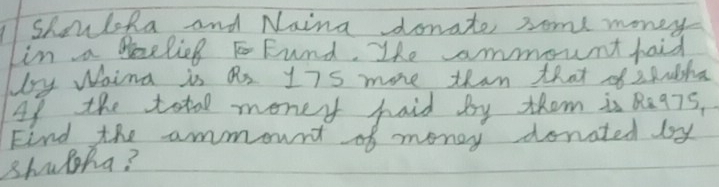 Shoubha and Naina donate some money
in a Relief Fund. The ammount paid
by Naina is Rs 175 more than that of shubha
If the total money paid by them is Rs 975,
Find the ammount of money donated by
Shubha?